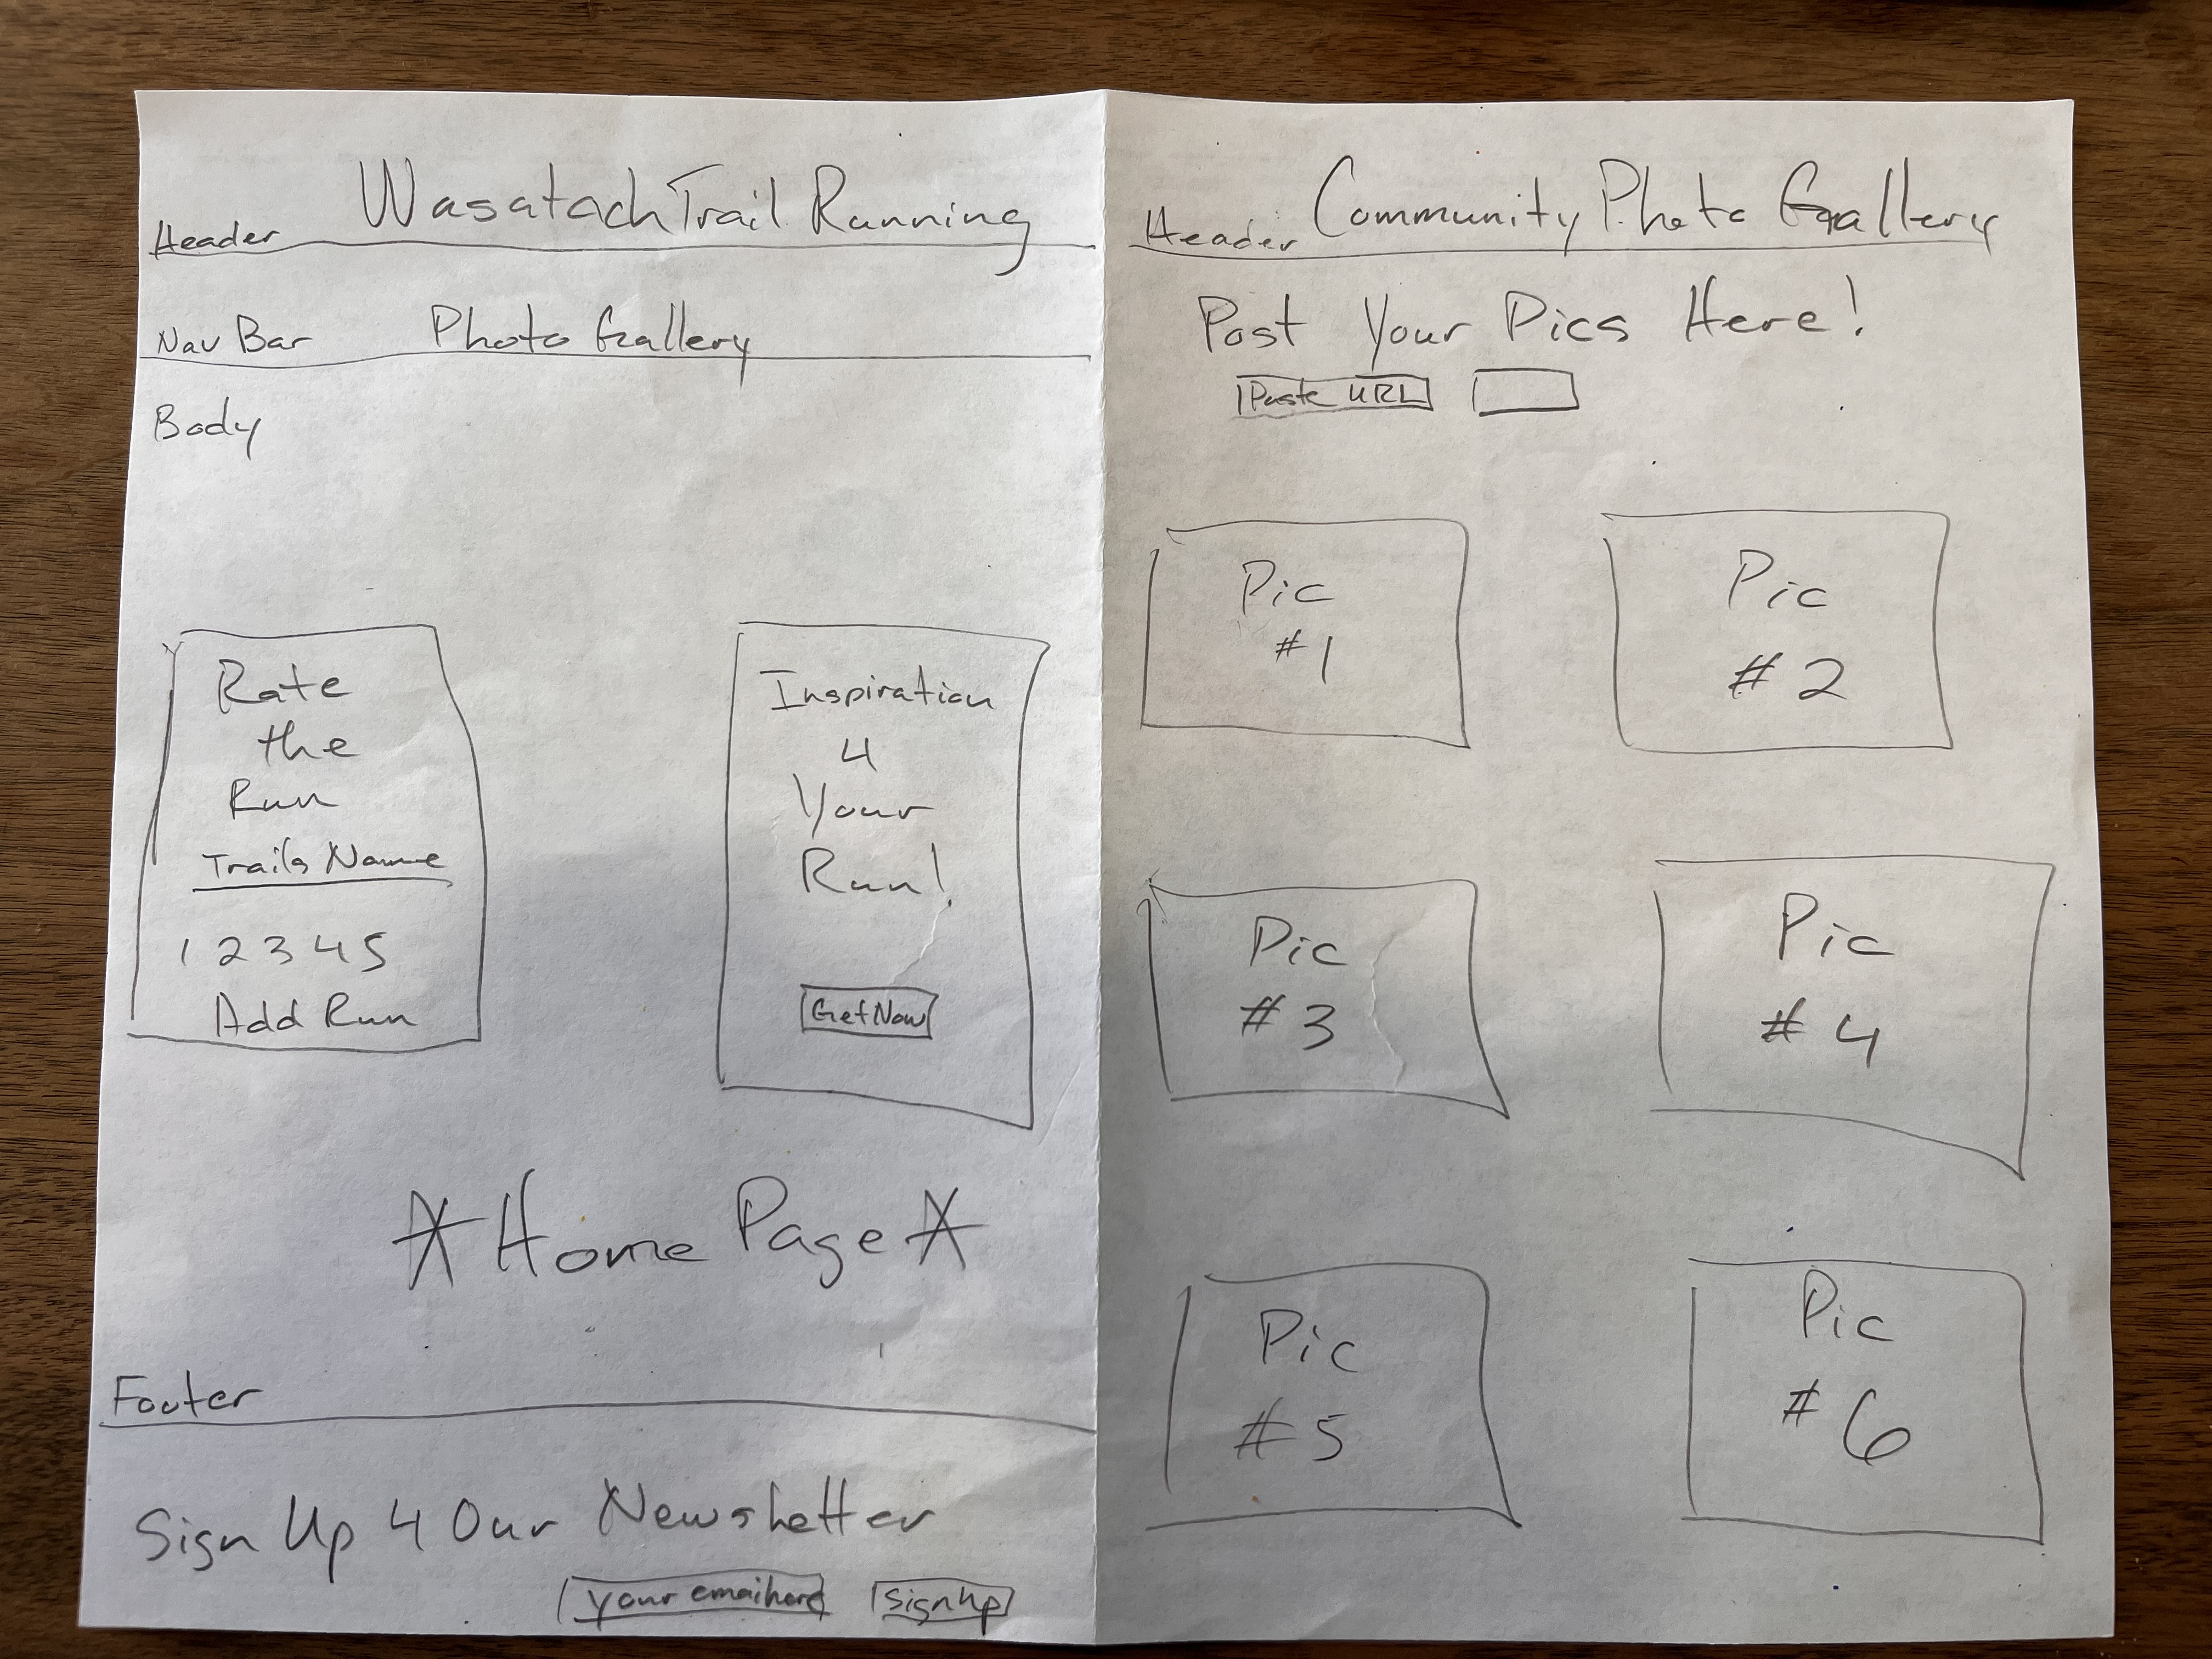 Header
Wasatach Trail Running
Nav Bar
Photo Gallery
Body
Rate
the
Run
Trails Name
1 2 3 4 5
Add Run
Inspiration
4
Your
Run!
Get Now
* Home Page *
Footer
Sign Up 4 Our Newsletter
Your email here
Sign Up
Header
Community Photo Gallery
Post Your Pics Here!
Paste URL
Pic
#1
Pic
#2
Pic
#3
Pic
#4
Pic
#5
Pic
#6